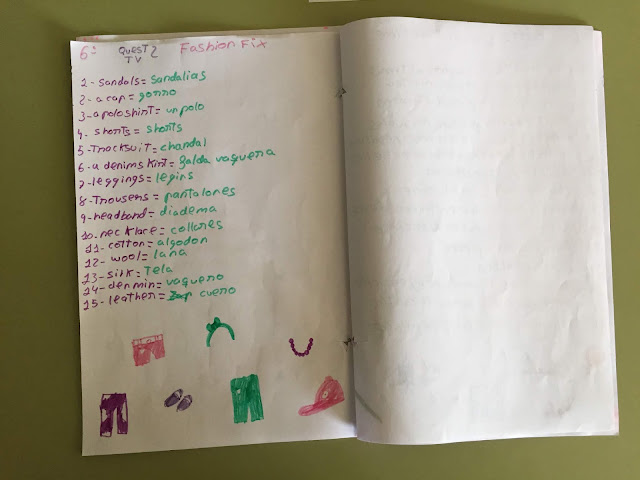 6: QUEST 2 Fashion Fix
TV
1- sandals = sandalias
2- a cap = gorro
3- a polo shirt = un polo
4- shorts = shorts
5- Tracksuit = chandal
6- a denim skirt = falda vaquera
7- leggings = legins
8- Trousers = pantalones
9- headband = diadema
10. necklace = collares
11- cotton = algodon
12- wool = lana
13- silk = Tela
14- denmin = vaquero
15- leather = cuero